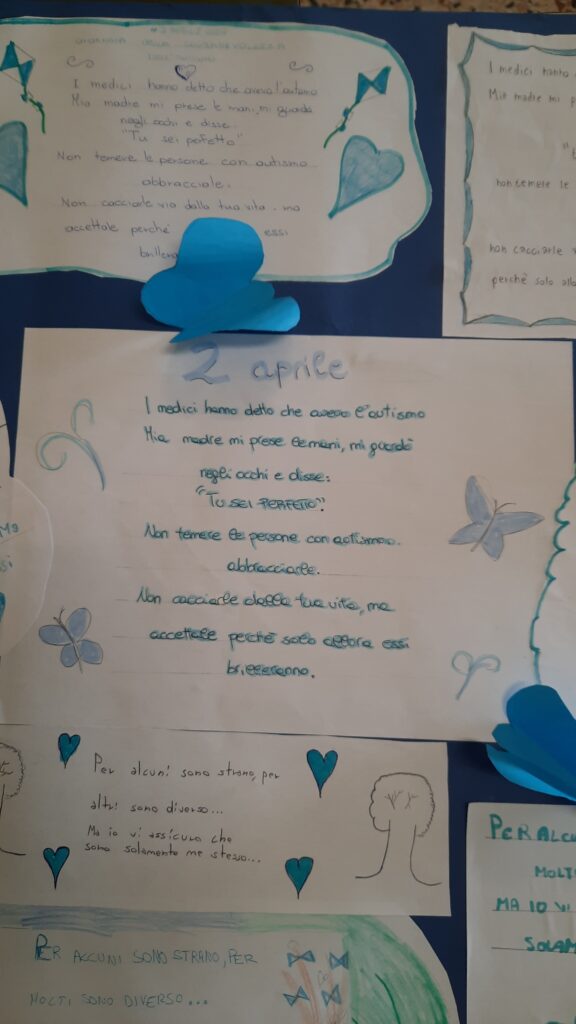 2 APRILE
GIORNATA DELLA CONSAPEVOLEZZA
I medici hanno detto che avevo l'autismo
Mia madre mi prese le mani, mi guardò
negli occhi e disse:
"Tu sei perfetto"
Non temere le persone con autismo
abbracciale.
Non cacciarle via dalla tua vita, ma
accettale perchè essi
brillera
I medici hanno
Mia madre mi p
non temere le
non cacciarle v
perchè solo allo
2 aprile
I medici hanno detto che avevo l'autismo
Mia madre mi prese le mani, mi guardò
negli occhi e disse:
"TU SEI PERFETTO".
Non temere le persone con autismo.
abbracciarle.
Non cacciarle dalla tua vita, ma
accettale perchè solo allora essi
brilleranno.
Per alcuni sono strano, per
altri sono diverso...
Ma io vi assicuro che
sono solamente me stesso...
PER ALCU
MOLT
MA IO VI
SOLAM
PER ALCUNI SONO STRANO, PER
MOLTI SONO DIVERSO...